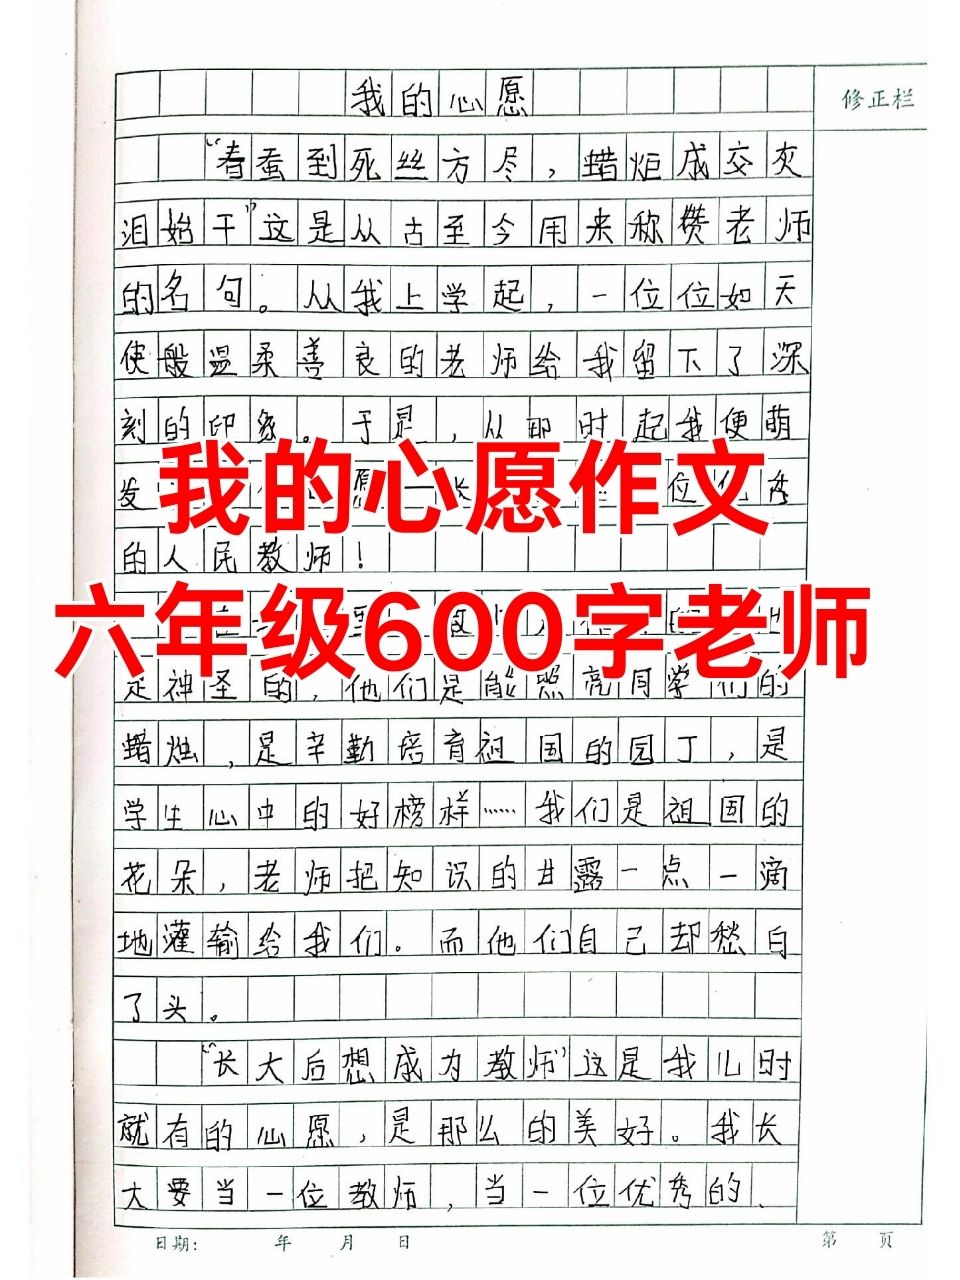 我的心愿
修正栏
“春蚕到死丝方尽，蜡炬成交灰
泪始干”这是从古至今用来称赞老师
的名句。从我上学起，一位位如天
使般温柔善良的老师给我留下了深
刻的印象。于是，从那时起我便萌
发 愿 长 位优秀
我的心愿作文
的人民教师！
六年级600字老师
是神圣的，他们是能照亮同学们的
蜡烛，是辛勤培育祖国的园丁，是
学生心中的好榜样……我们是祖国的
花朵，老师把知识的甘露一点一滴
地灌输给我们。而他们自己却愁白
了头。
“长大后想成为教师”这是我儿时
就有的心愿，是那么的美好。我长
大要当一位教师，当一位优秀的、
日期： 年 月 日
第 页